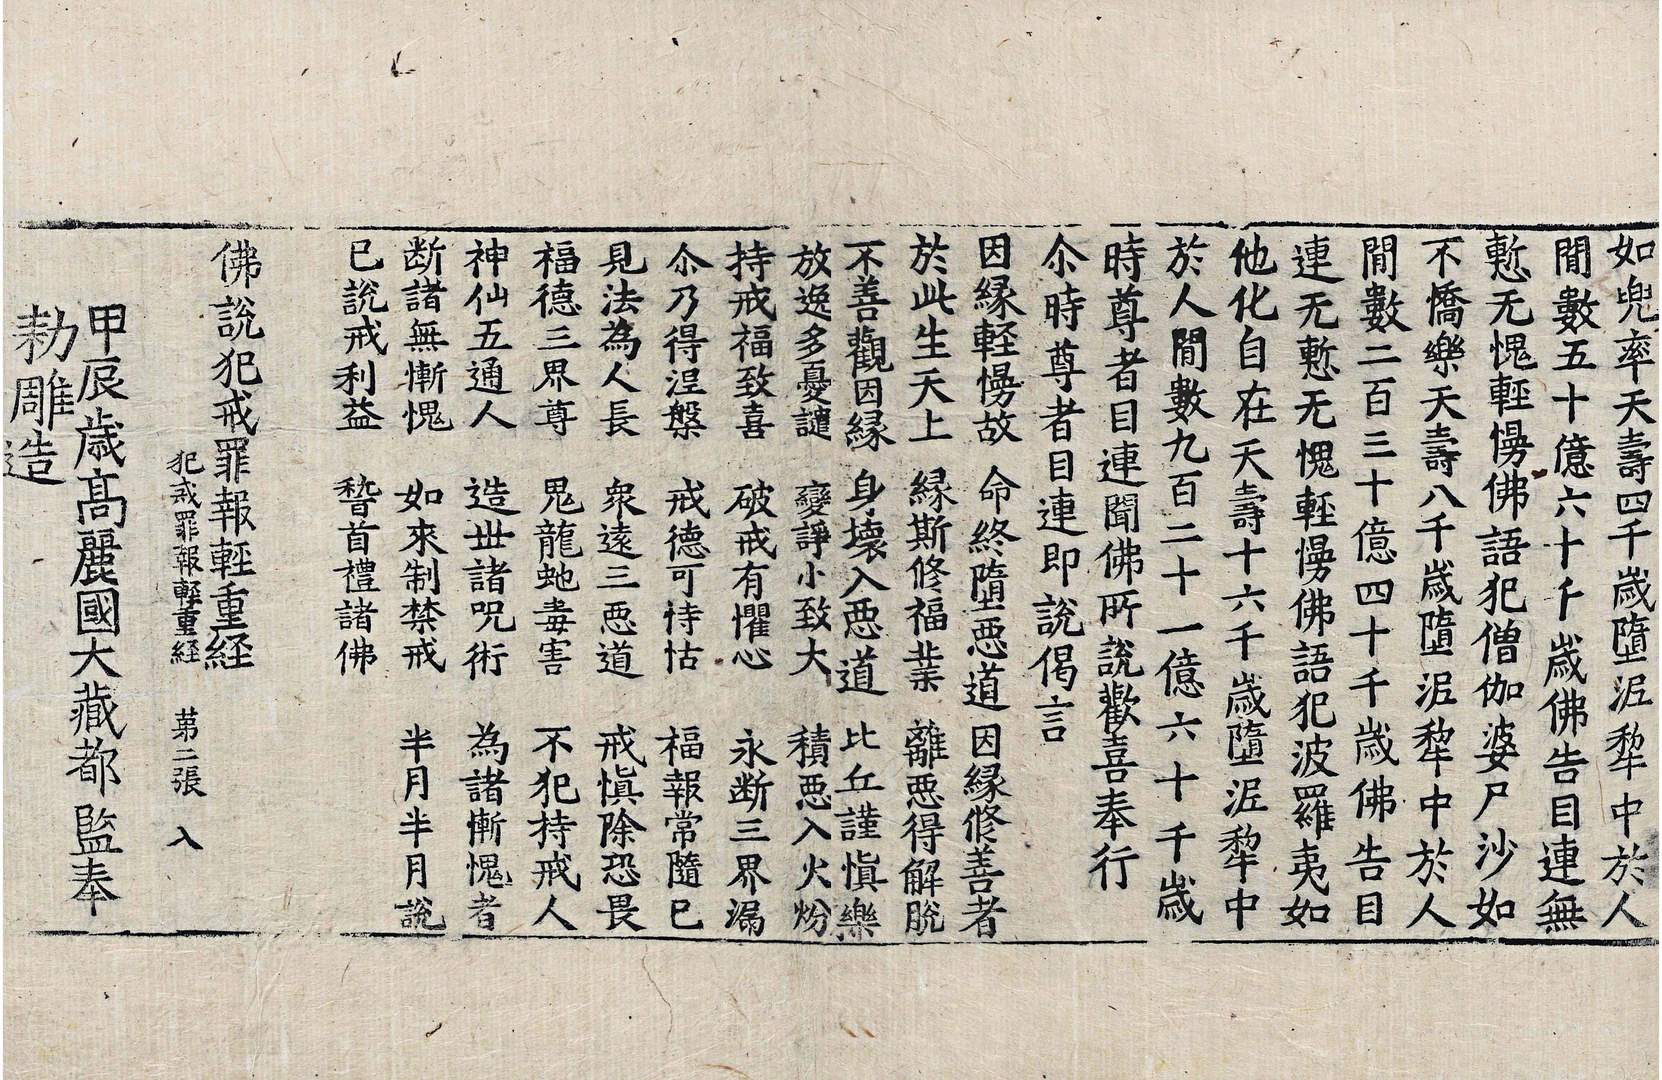 如兜率天壽四千歲墮泥犂中於人
閒數五十億六十千歲佛告目連無
慙无愧輕慢佛語犯僧伽婆尸沙如
不憍樂天壽八千歲墮泥犂中於人
閒數二百三十億四十千歲佛告目
連无慙无愧輕慢佛語犯波羅夷如
他化自在天壽十六千歲墮泥犂中
於人閒數九百二十一億六十千歲
時尊者目連聞佛所說歡喜奉行
尒時尊者目連即說偈言
因緣輕慢故　命終墮惡道　因緣修善者
於此生天上　緣斯修福業　離惡得解脫
不善觀因緣　身壞入惡道　比丘謹慎樂
放逸多憂譴　變諍小致大　積惡入火焚
持戒福致喜　破戒有懼心　永断三界漏
尒乃得涅槃　戒德可恃怙　福報常隨已
見法為人長　衆遠三惡道　戒慎除恐畏
福德三界尊　鬼龍虵毒害　不犯持戒人
神仙五通人　造世諸呪術　為諸慚愧者
断諸無慚愧　如來制禁戒　半月半月說
已說戒利益　稽首禮諸佛
佛說犯戒罪報輕重経
犯戒罪報輕重経　第二張　入
甲辰歲高麗國大藏都監奉
勑雕造